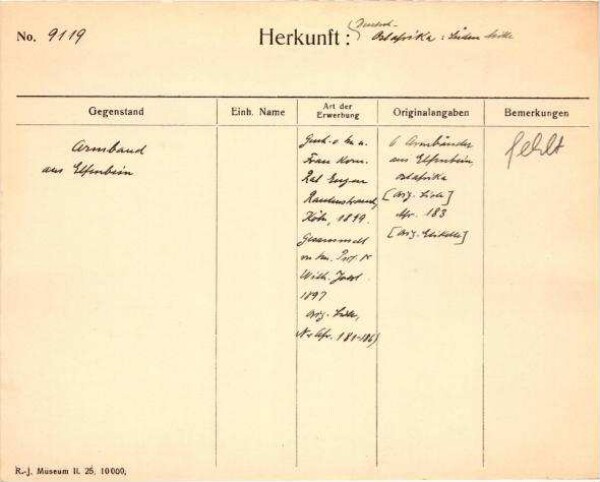 No. 9119
Herkunft: Deutsch-
Ostafrika: Süden
Gegenstand
Einh. Name
Art der
Erwerbung
Originalangaben
Bemerkungen
Armband
aus Elfenbein
Gesch. v. H. u.
Frau Kom.
Rat Eugen
Rautenstrauch,
Köln, 1899.
Gesammelt
von H. Prof. Dr
Wilh. Joest
1897
Orig. Liste,
Nr Afr. 181-186)
6 Armbänder
aus Elfenbein,
Ostafrika
[Orig. Liste]
Afr. 183
[Orig. Etikette]
fehlt
R.-J. Museum II. 25. 10000.